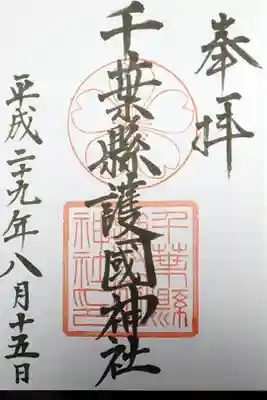 奉拝
千葉縣護國神社
千葉縣
護國
神社印
平成二十九年八月十五日